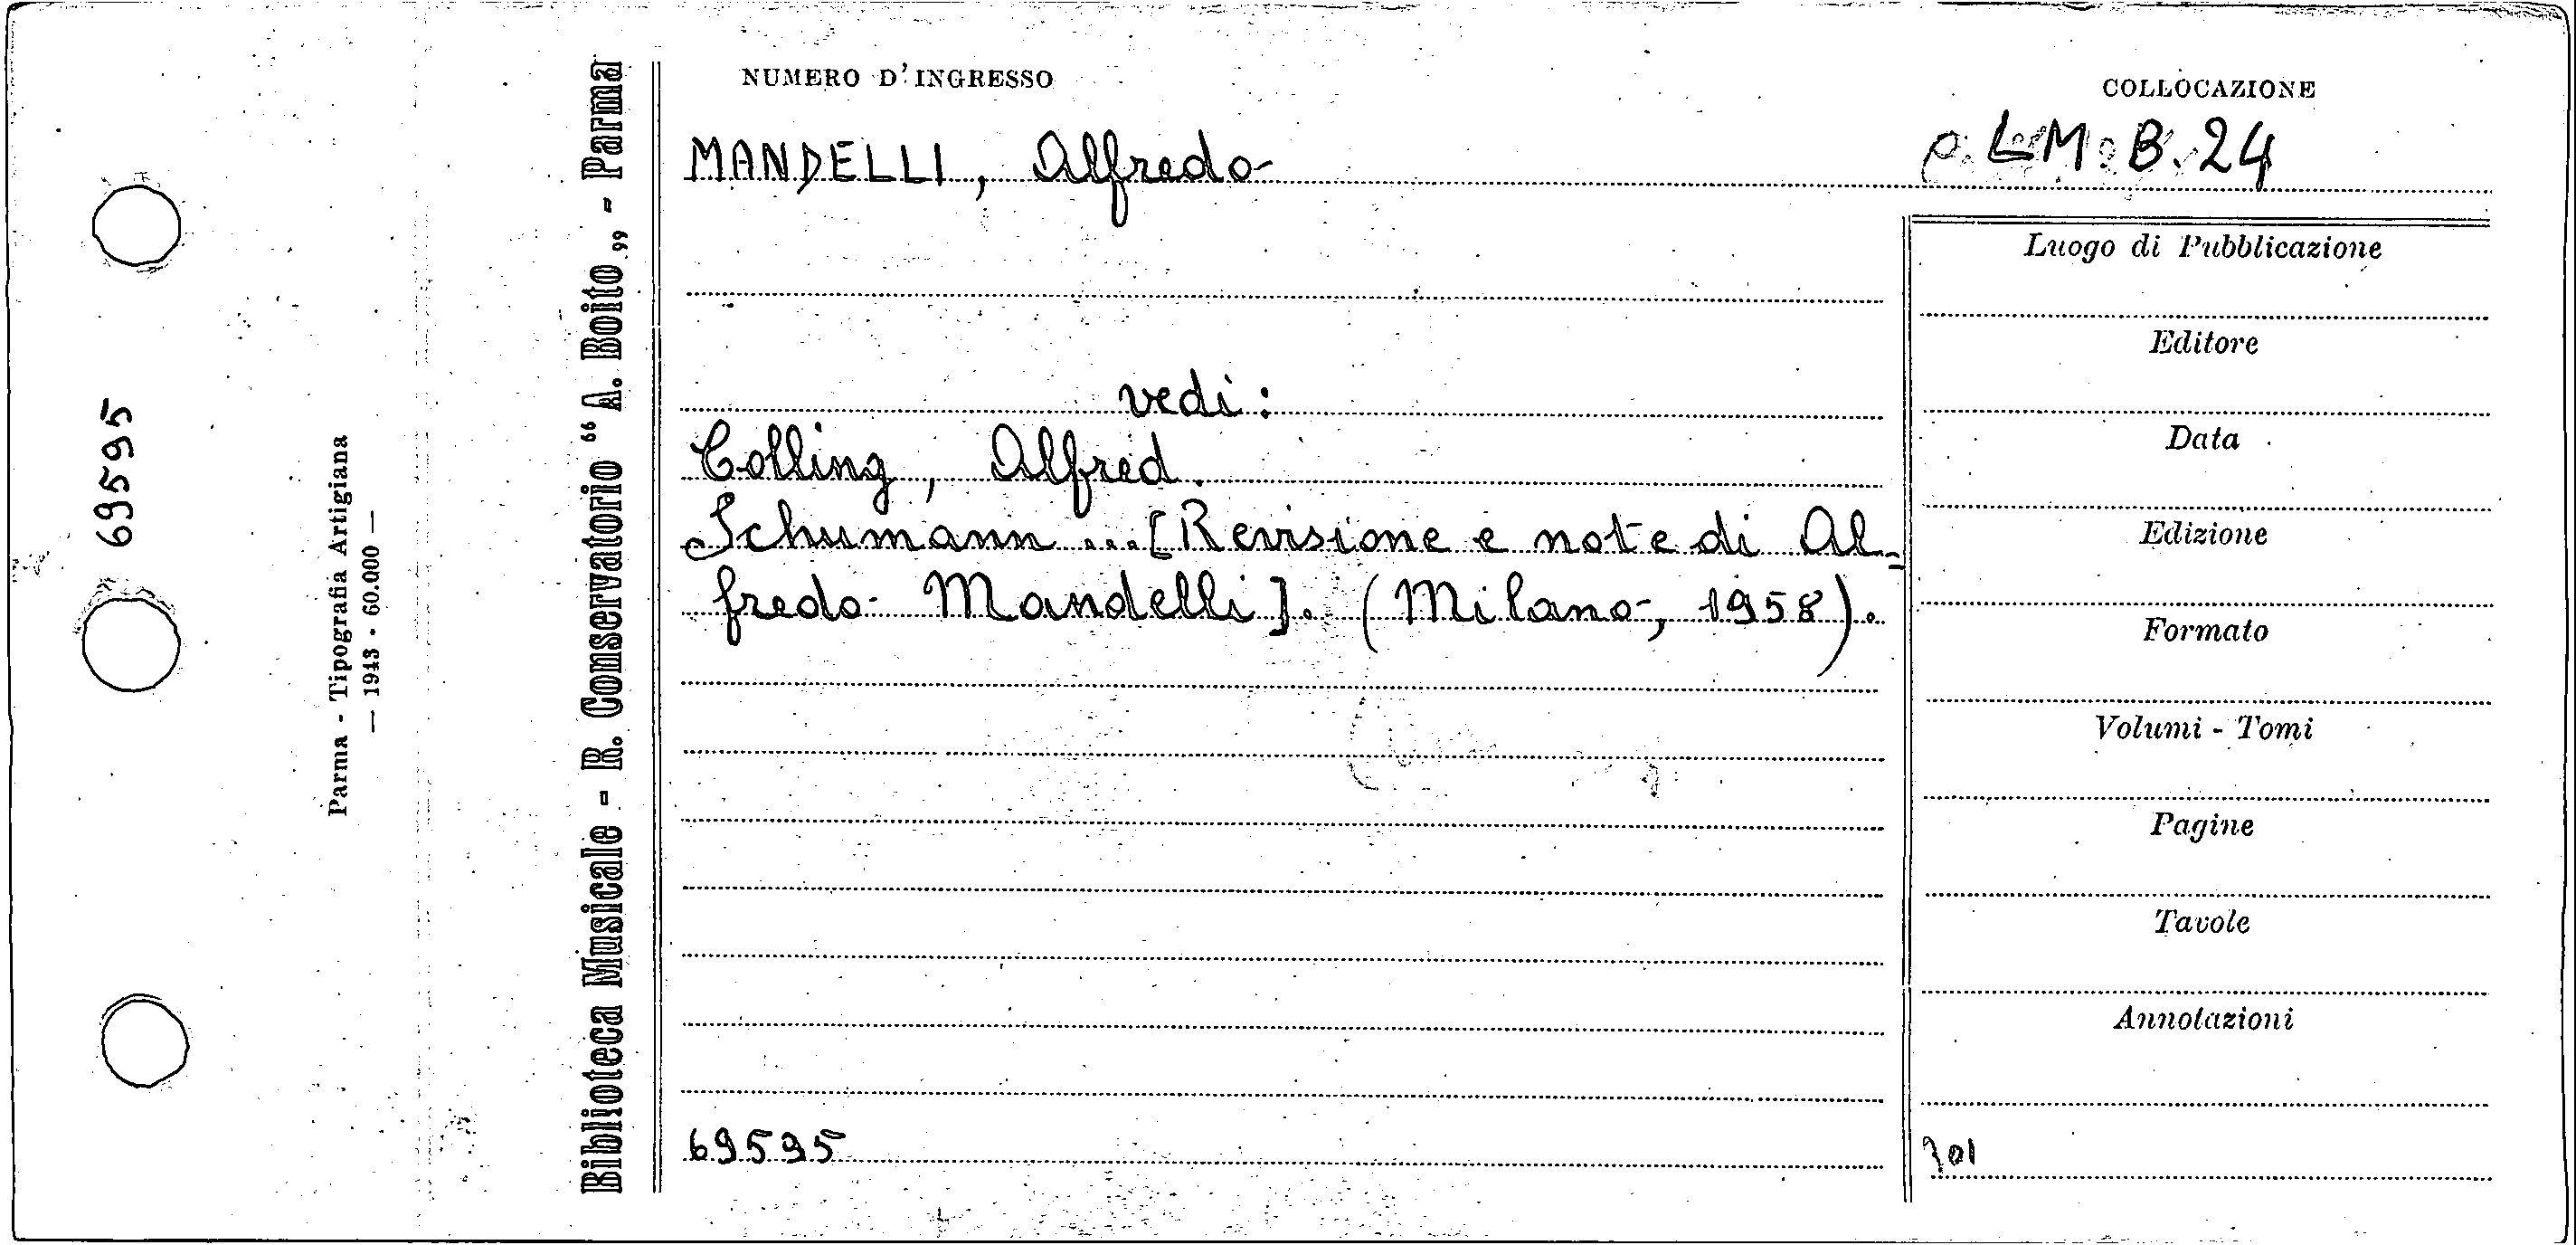 69595
Parma - Tipografia Artigiana
— 1943 - 60.000 —
Biblioteca Musicale - R. Conservatorio “A. Boito„ - Parma
NUMERO D'INGRESSO
COLLOCAZIONE
MANDELLI, Alfredo
c. LM. B. 24
vedi:
Colling, Alfred.
Schumann ... [Revisione e note di Al-
fredo Mandelli]. (Milano, 1958).
69595
Luogo di Pubblicazione
Editore
Data
Edizione
Formato
Volumi - Tomi
Pagine
Tavole
Annotazioni
301